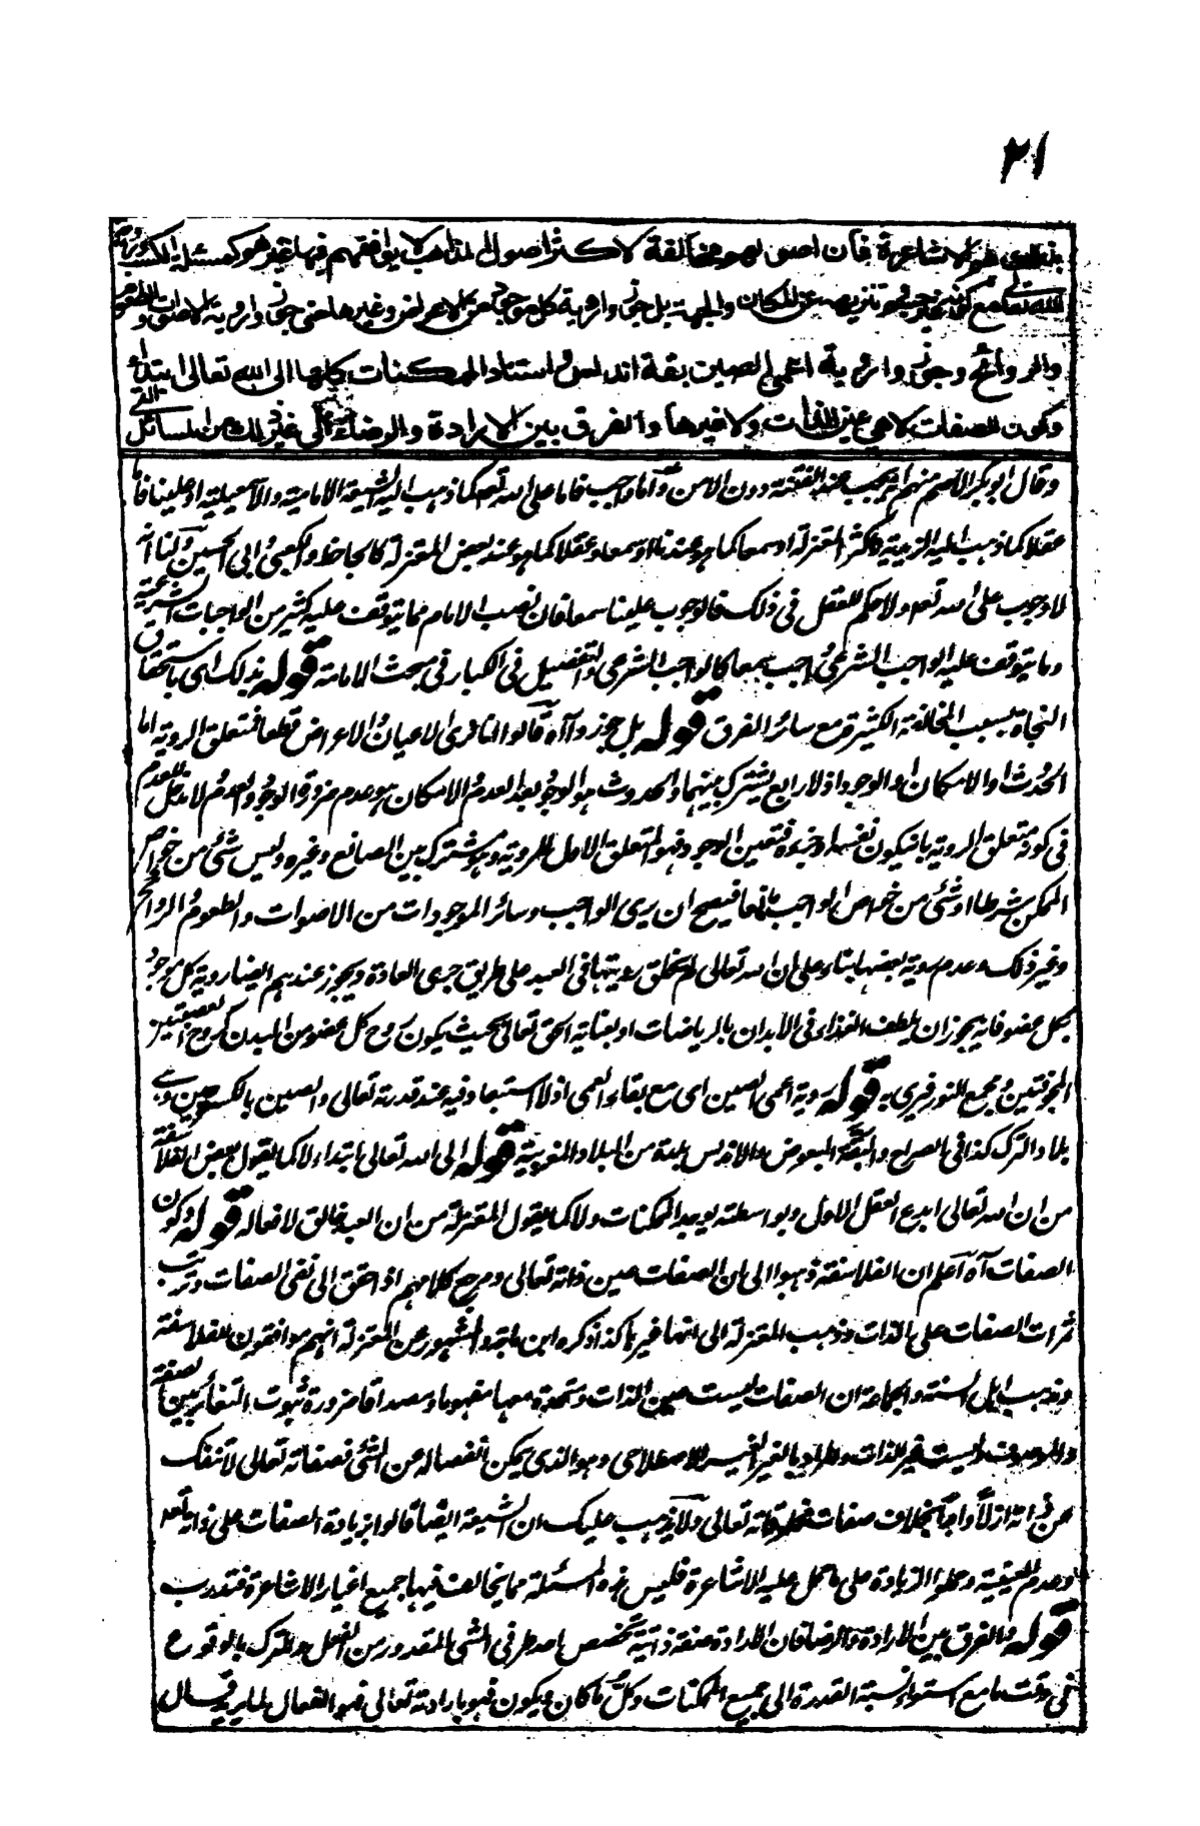 ٢١
بذلك هو الاشاعرة فان اصولهم مخالفة لاكثر اصول المذاهب لا يوافقهم فيها غيرهم كمسئلة الكسب ورؤية
الله تعالى مع كونه غير جسم وتنزيهه عن المكان والجهة بل جوزوا رؤية كل موجود من الاعراض وغيرها حتى جوزوا رؤية الاصوات والطعوم
والروائح وجوزوا رؤية اعمى الصين بقة اندلس واستناد الممكنات كلها الى الله تعالى ابتداء
وكون الصفات لا هي عين الذات ولا غيرها والفرق بين الارادة والرضاء الى غير ذلك من المسائل التي
وقال ابو بكر الاصم منهم انه يجب عند الفتنة دون الامن واما واجب فاما على الله تعالى كما ذهب اليه الشيعة الامامية والاسمعيلية او علينا فاما
عقلا كما ذهب اليه الزيدية واكثر المعتزلة او سمعا كما هو عندنا او سمعا وعقلا كما هو عند بعض المعتزلة كالجاحظ والكعبي وابي الحسين ولنا انه
لا وجوب على الله تعالى ولا حكم للعقل في ذلك فالوجوب علينا سمعا فان نصب الامام مما يتوقف عليه كثير من الواجبات الشرعية
وما يتوقف عليه الواجب الشرعي واجب سمعا كالواجب الشرعي والتفصيل في الكبار في مبحث الامامة قوله بذلك اى باستحقاق
النجاة بسبب المخالفة الكثيرة مع سائر الفرق قوله بل جوزوا آه قالوا انا نرى الاعيان والاعراض قطعا فمتعلق الروية اما
الحدوث او الامكان او الوجود اذ لا رابع يشترك بينهما والحدوث هو الوجود بعد العدم والامكان هو عدم ضرورة الوجود والعدم لا مدخل للعدم
في كونه متعلق الروية بان يكون نفسه او جزءه فتعين الوجود فهو المتعلق الاول للروية وهو مشترك بين الصانع وغيره وليس شئ من خواص
الممكن شرطا او شئ من خواص الواجب مانعا فيصح ان يرى الواجب وسائر الموجودات من الاصوات والطعوم والروائح
وغير ذلك وعدم روية بعضها بناء على ان الله تعالى لم يخلق رويتها في العبد على طريق جرى العادة ويجوز عندهم ايضا روية كل موجود
بكل عضو فانه يجوز ان يلطف الغذاء في الابدان بالرياضات او بعناية الحق تعالى بحيث يكون روح كل عضو من البدن كروح العصبتين
المجوفتين ومجمع النور فيرى به قوله روية اعمى الصين اى مع بقاء العمى اذ لا استبعاد فيه عند قدرته تعالى والصين بالكسر
بلاد الترك كذا في الصراح والبقة البعوض والاندلس بلدة من البلاد المغربية قوله الى الله تعالى ابتداء لا كما يقول بعض الفلاسفة
من ان الله تعالى ابدع العقل الاول وبواسطته يوجد الممكنات ولا كما يقول المعتزلة من ان العبد خالق لافعاله قوله وكون
الصفات آه اعلم ان الفلاسفة ذهبوا الى ان الصفات عين ذاته تعالى ومرجع كلامهم اذا حقق الى نفى الصفات وترتب
ثمرات الصفات على الذات وذهب المعتزلة الى انها غيرها كذا ذكره ابن والمشهور من المعتزلة انهم موافقون للفلاسفة
وذهب اهل السنة والجماعة ان الصفات ليست عين الذات ومتحدة معها مفهوما ومصداقا ضرورة ثبوت التغاير بين الصفة
والموصوف وليست غير الذات والمراد بالغير الغير الاصطلاحي وهو الذى يمكن انفصاله عن الشئ فصفاته تعالى لا تنفك
عن ذاته ازلا وابدا بخلاف صفات مخلوقاته تعالى ولا يذهب عليك ان الشيعة ايضا قالوا بزيادة الصفات على ذاته تعالى
وعدم العينية وحملوا الزيادة على ما حمل عليه الاشاعرة فليس هذه المسئلة مما يخالف فيها جميع اغيار الاشاعرة فتدرب
قوله والفرق بين الارادة والرضا فان الارادة صفة ذاتية تخصص احد طرفى الشئ المقدور من الفعل والترك بالوقوع
فى وقت ما مع استواء نسبة القدرة الى جميع الممكنات وكل ما كان ويكون فهو بارادته تعالى فهو الفعال لما يريد قال